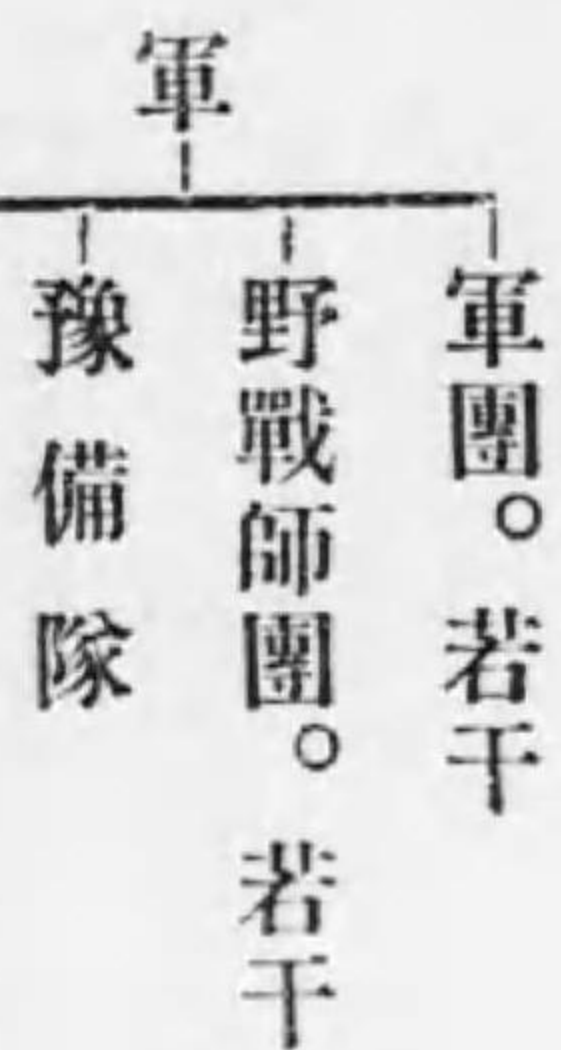 軍
軍團。若干
野戰師團。若干
豫備隊